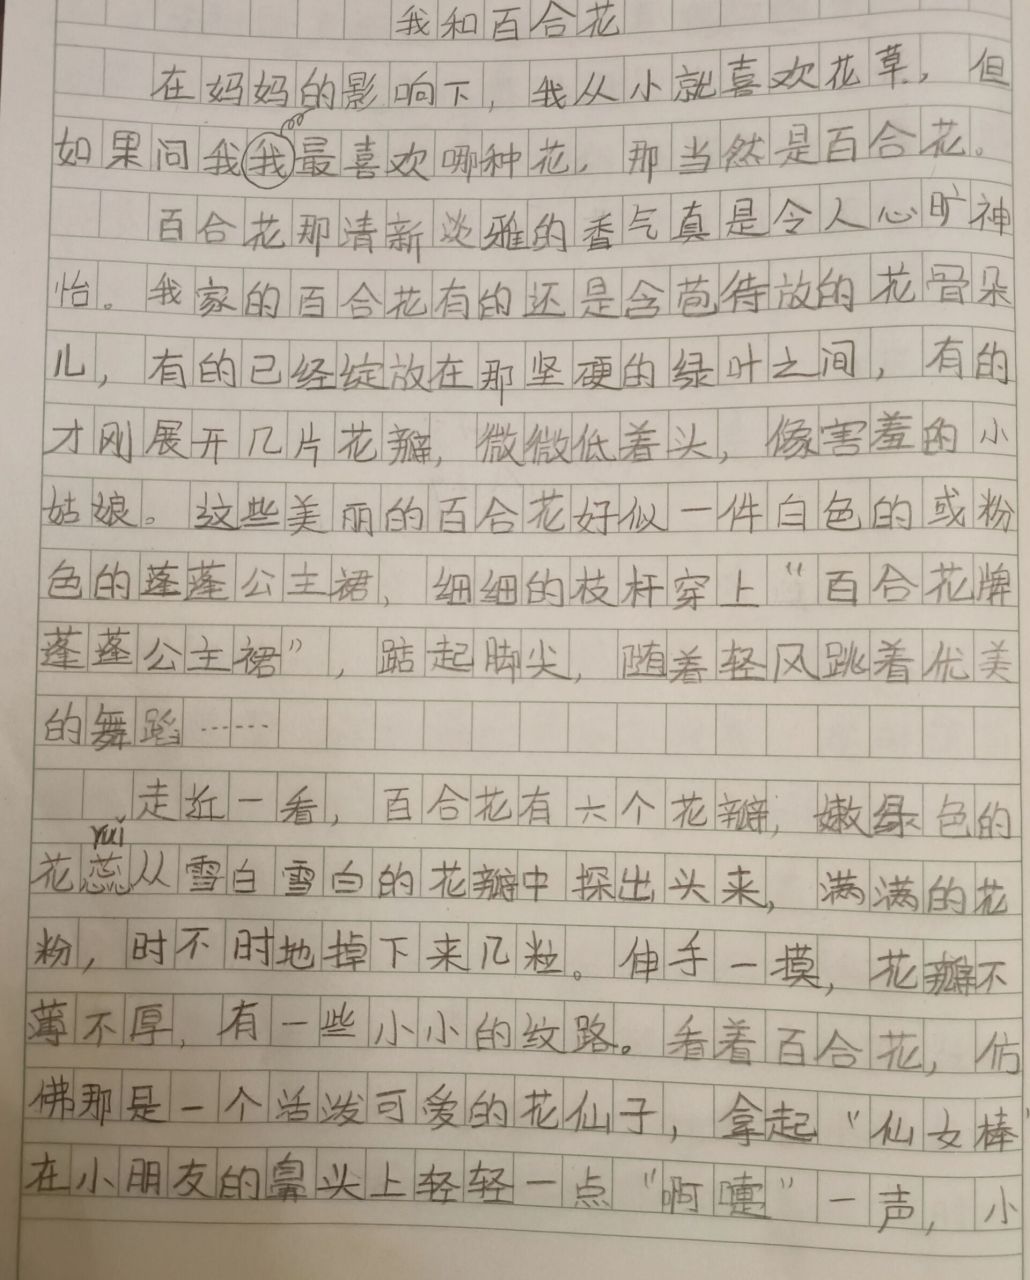 我和百合花
在妈妈的影响下，我从小就喜欢花草，但
如果问我我最喜欢哪种花，那当然是百合花。
百合花那清新淡雅的香气真是令人心旷神
怡。我家的百合花有的还是含苞待放的花骨朵
儿，有的已经绽放在那坚硬的绿叶之间，有的
才刚展开几片花瓣，微微低着头，像害羞的小
姑娘。这些美丽的百合花好似一件白色的或粉
色的蓬蓬公主裙，细细的枝杆穿上“百合花牌
蓬蓬公主裙”，踮起脚尖，随着轻风跳着优美
的舞蹈……
走近一看，百合花有六个花瓣，嫩绿色的
ruǐ
花蕊从雪白雪白的花瓣中探出头来，满满的花
粉，时不时地掉下来几粒。伸手一摸，花瓣不
薄不厚，有一些小小的纹路。看着百合花，仿
佛那是一个活泼可爱的花仙子，拿起“仙女棒”
在小朋友的鼻头上轻轻一点“啊嚏”一声，小